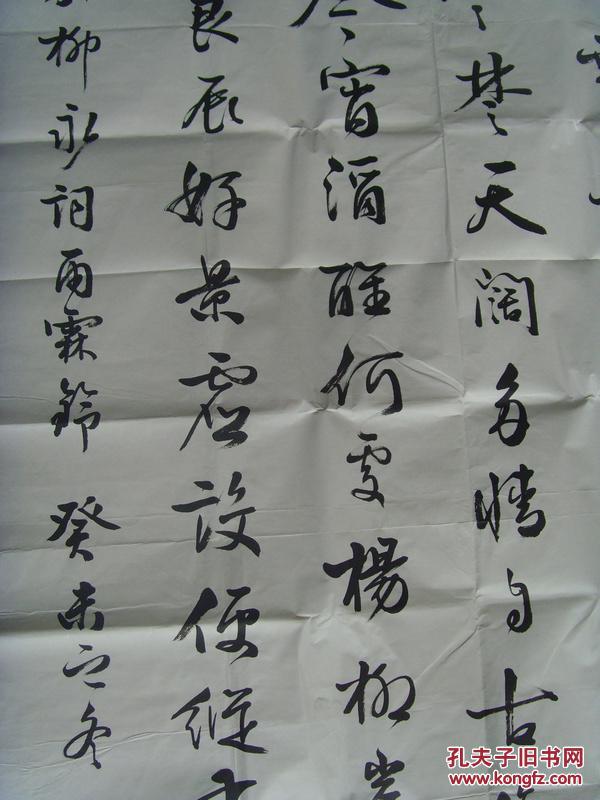 楚天阔多情自古
宵酒醒何處楊柳岸
良辰好景虚設便縱
柳永詞雨霖鈴 癸未之冬
孔夫子旧书网
www.kongfz.com